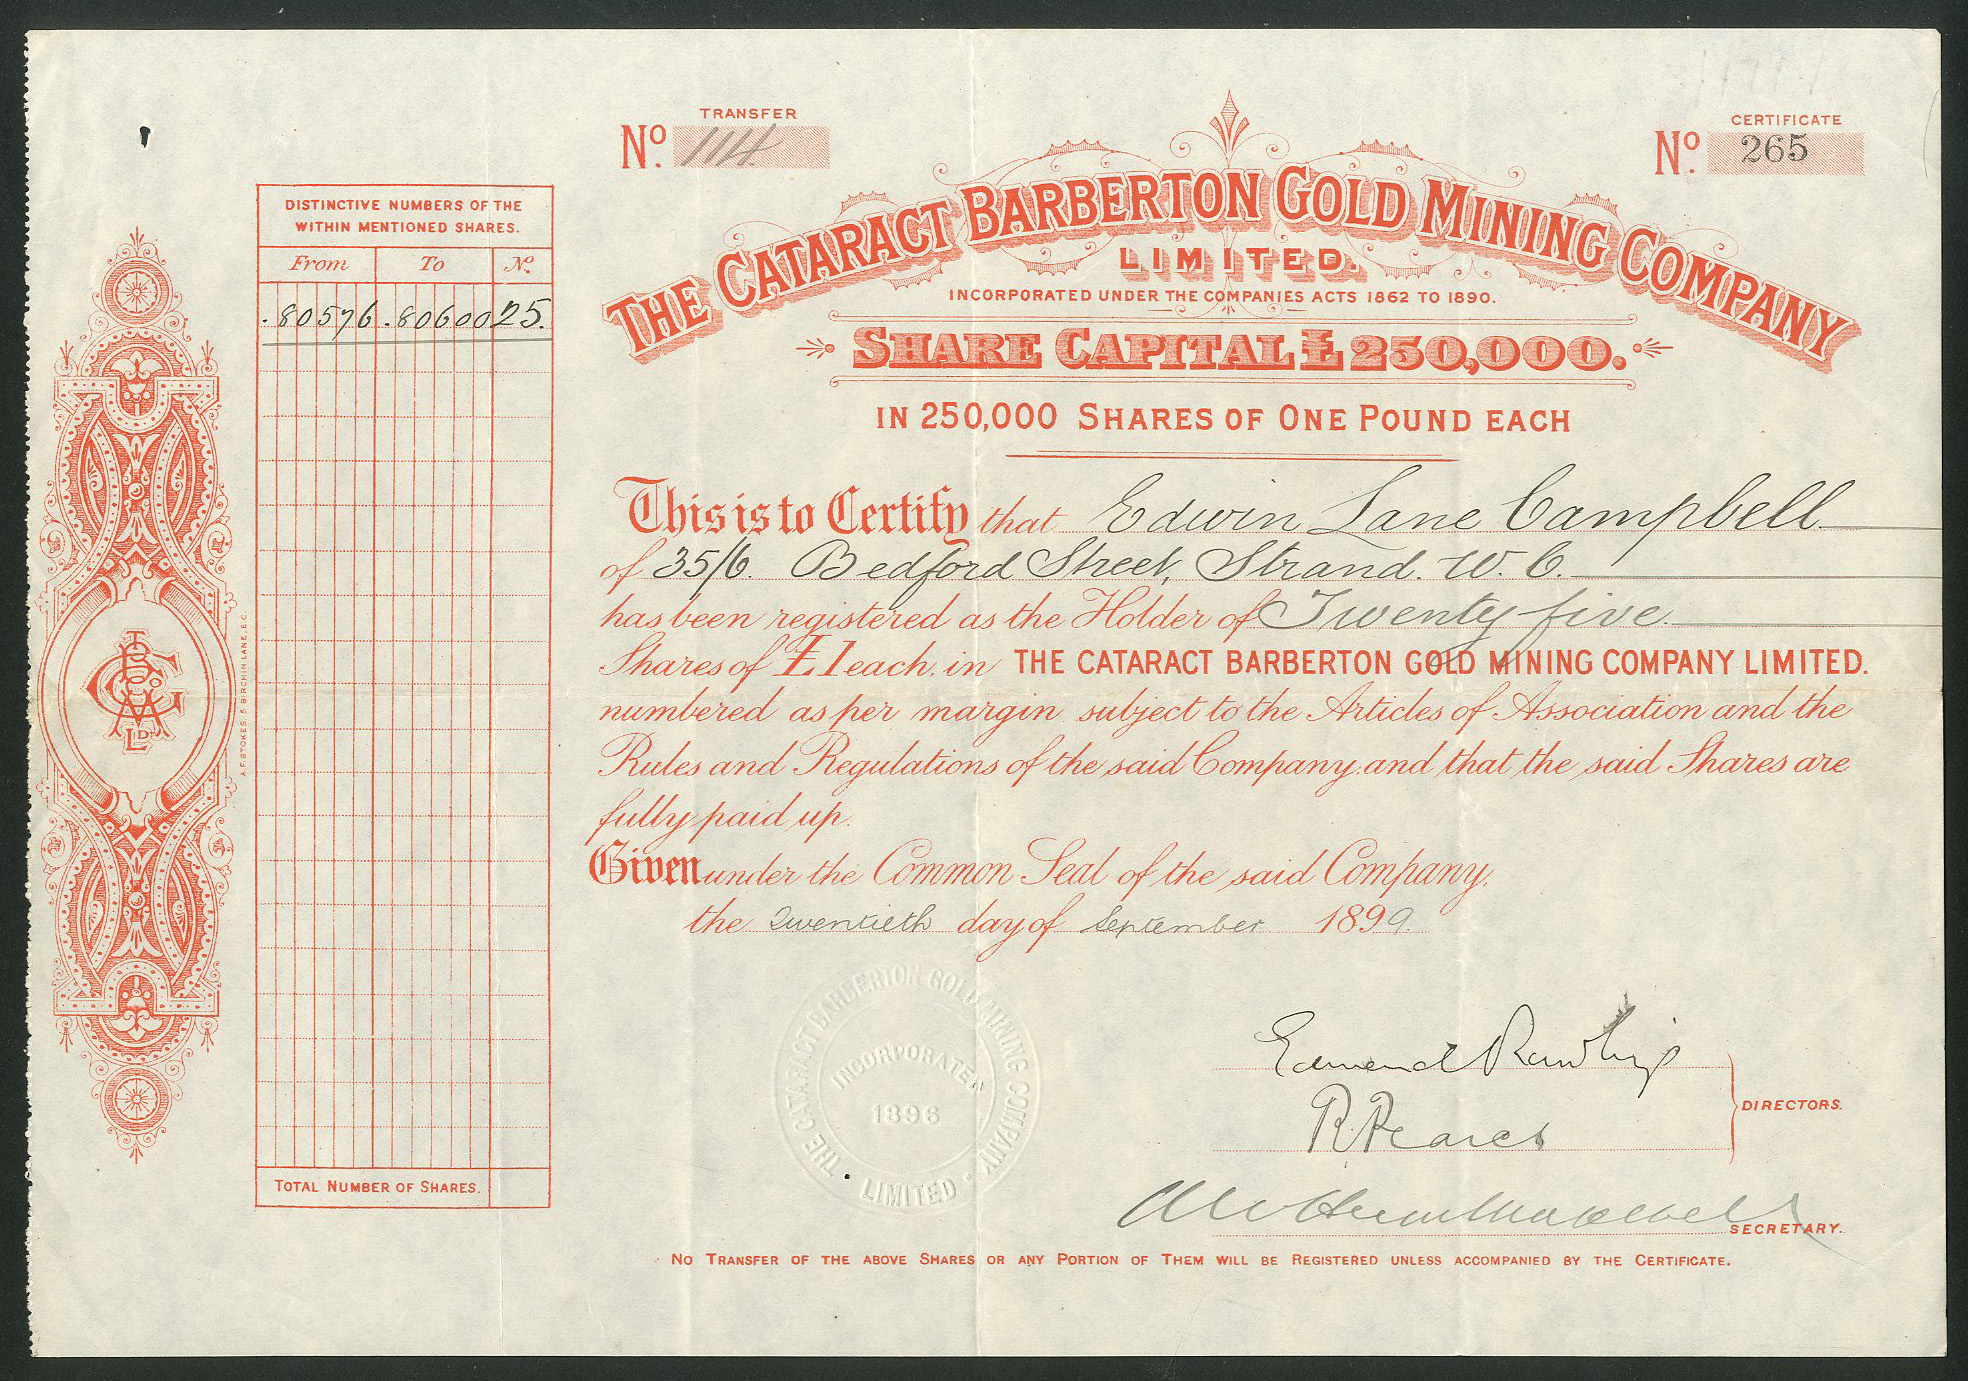 TRANSFER
No. 1114
CERTIFICATE
No. 265
THE CATARACT BARBERTON GOLD MINING COMPANY
LIMITED.
INCORPORATED UNDER THE COMPANIES ACTS 1862 TO 1890.
SHARE CAPITAL £250,000.
IN 250,000 SHARES OF ONE POUND EACH
DISTINCTIVE NUMBERS OF THE
WITHIN MENTIONED SHARES.
From To No.
80576 80600 25.
TOTAL NUMBER OF SHARES.
A.F. STOKES, 5 BIRCHIN LANE, E.C.
This is to Certify that Edwin Lane Campbell
of 35/6. Bedford Street, Strand. W.C.
has been registered as the Holder of Twenty five
Shares of £1 each, in THE CATARACT BARBERTON GOLD MINING COMPANY LIMITED.
numbered as per margin subject to the Articles of Association and the
Rules and Regulations of the said Company, and that the said Shares are
fully paid up.
Given under the Common Seal of the said Company,
the twentieth day of September 1899.
THE CATARACT BARBERTON GOLD MINING COMPANY
LIMITED
INCORPORATED
1896
Edmund
R. Pearce
DIRECTORS.
SECRETARY.
NO TRANSFER OF THE ABOVE SHARES OR ANY PORTION OF THEM WILL BE REGISTERED UNLESS ACCOMPANIED BY THE CERTIFICATE.